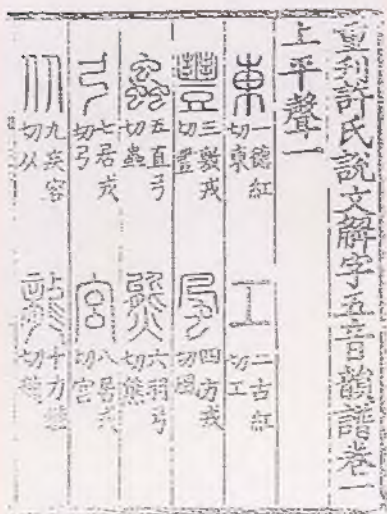 重刋許氏說文解字五音韻譜卷一
上平聲一
東 一德紅切東 工 二古紅切工
豐 三敷戎切豐 風 四方戎切風
蟲 五直弓切蟲 熊 六羽弓切熊
弓 七居戎切弓 宮 八居戎切宮
从 九疾容切从 龍 十力鍾切龍